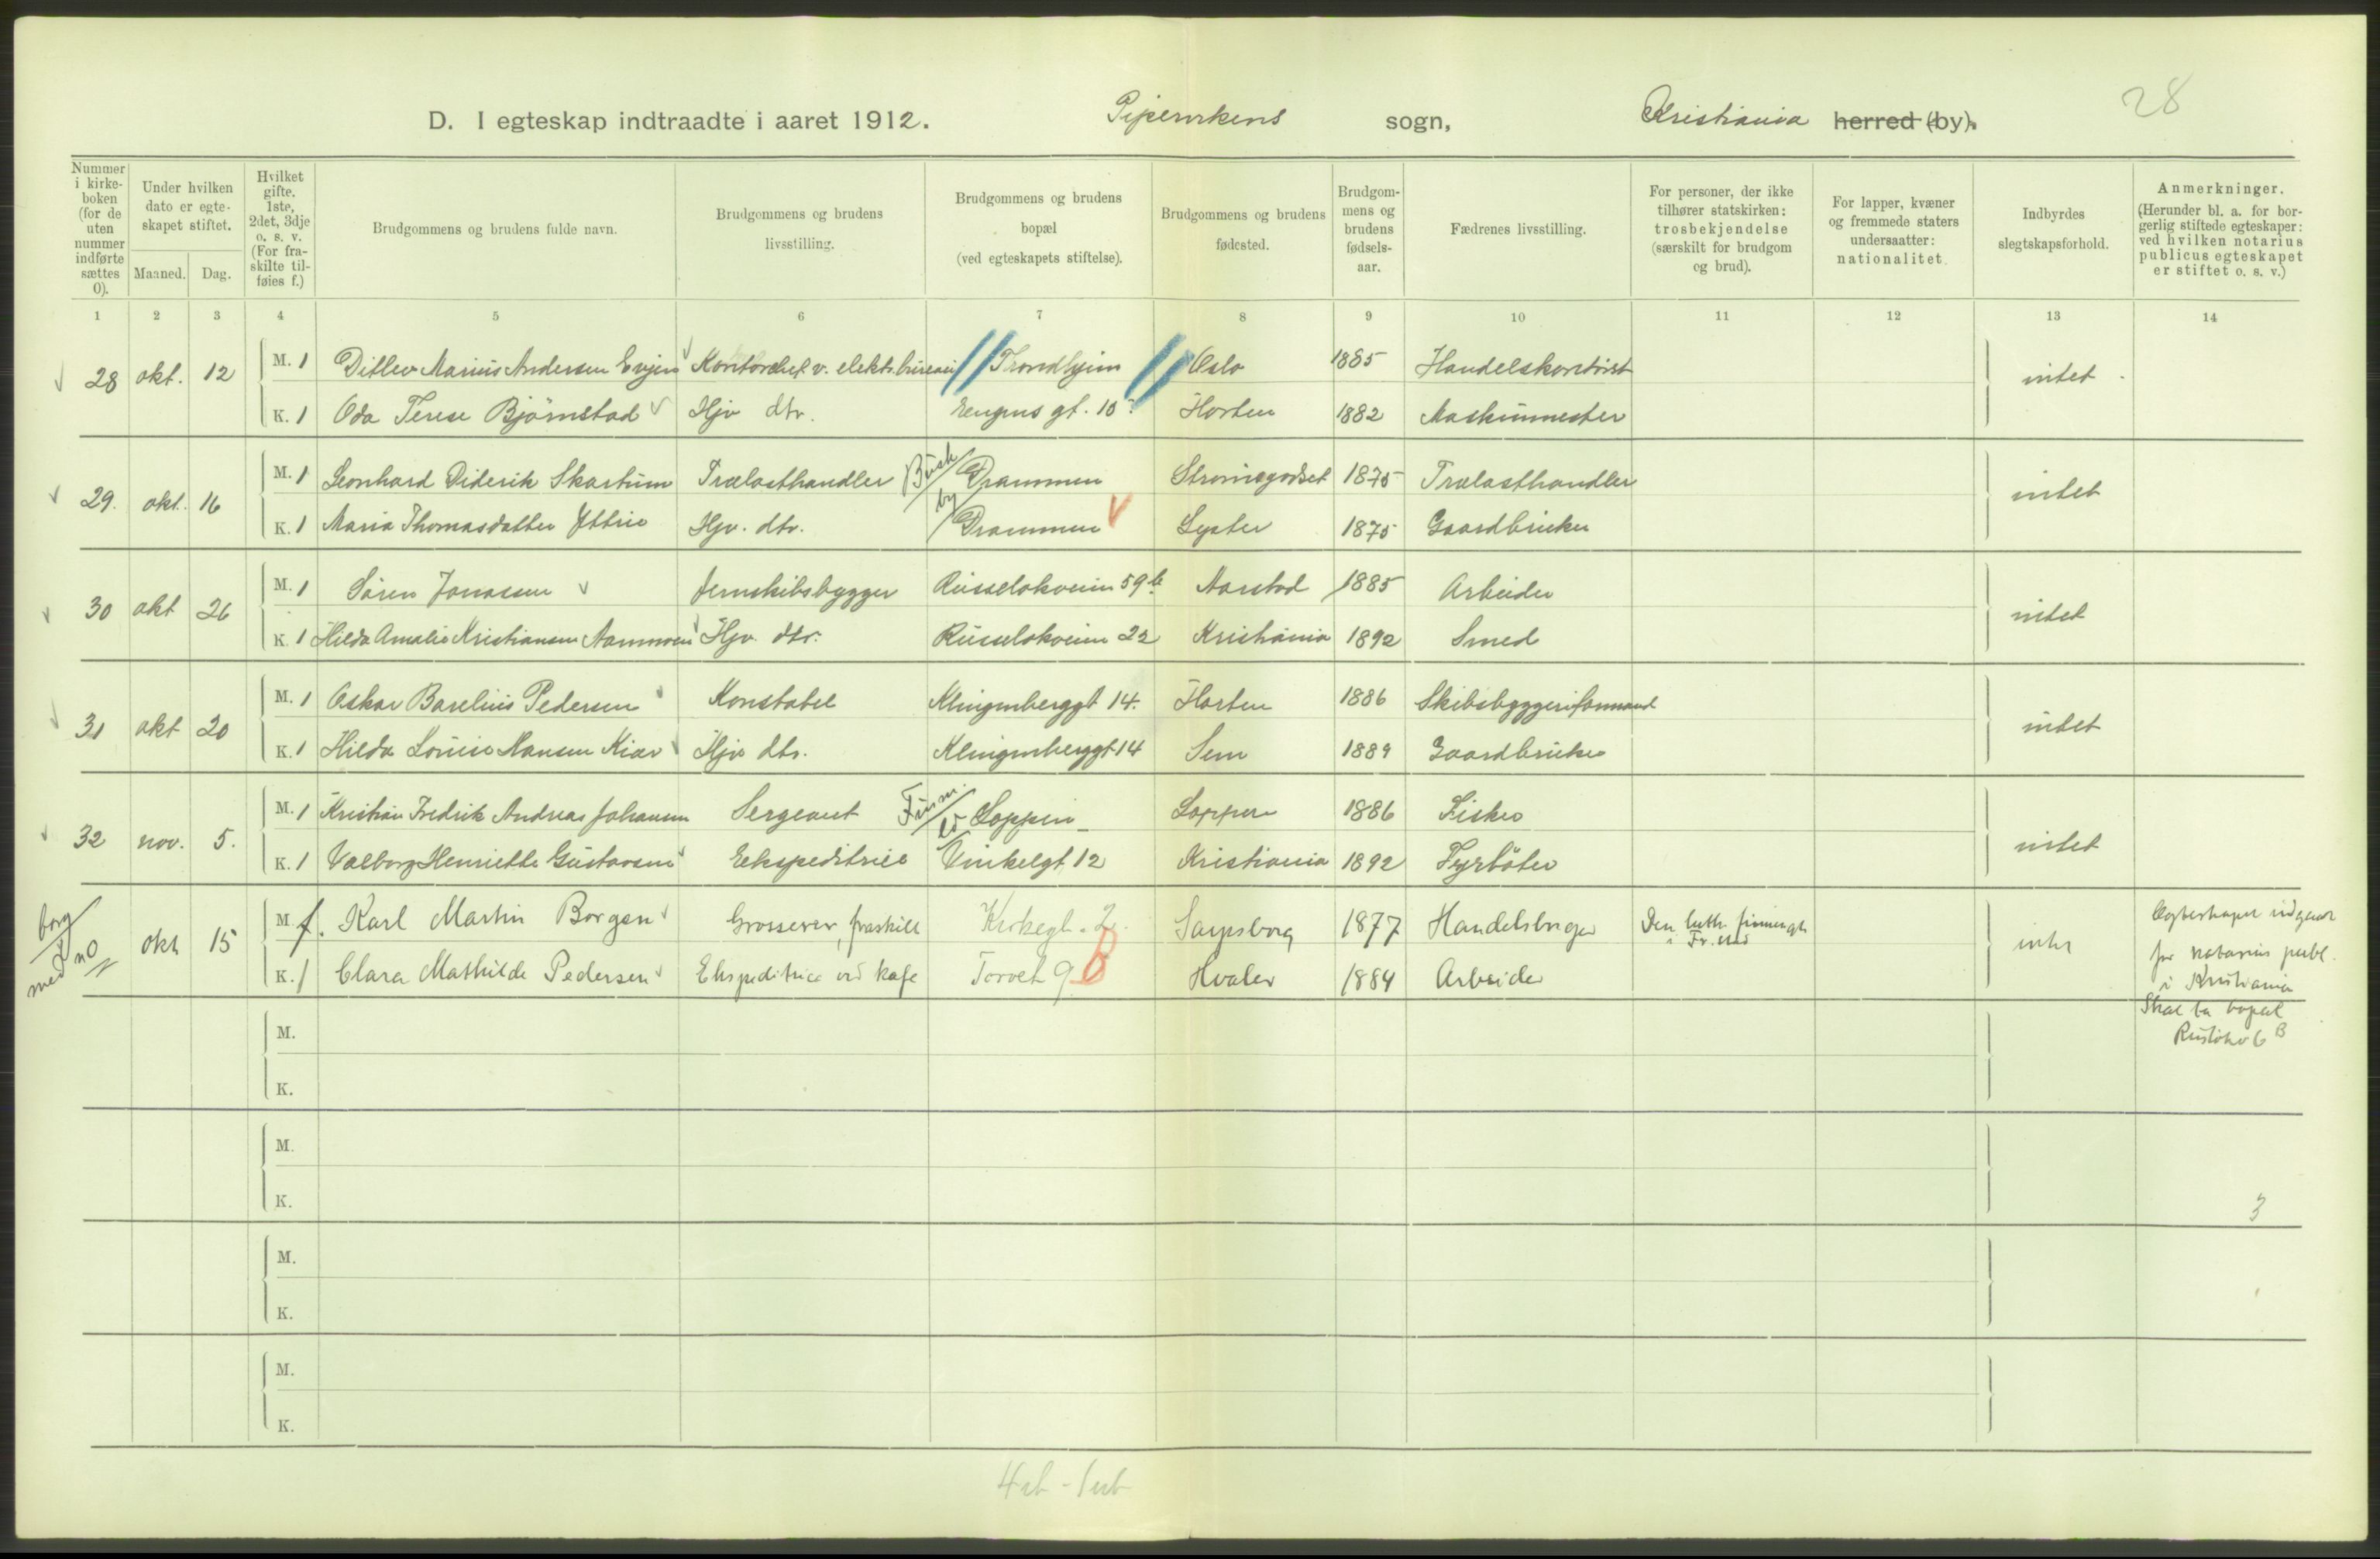 28
D. I egteskap indtraadte i aaret 1912. Pipervikens sogn, Kristiania herred (by).
Nummer i kirkeboken (for de uten nummer indførte sættes 0).
Under hvilken dato er egteskapet stiftet.
Maaned. Dag.
Hvilket gifte. 1ste, 2det, 3dje o. s. v. (For fraskilte tilføies f.)
Brudgommens og brudens fulde navn.
Brudgommens og brudens livsstilling.
Brudgommens og brudens bopæl (ved egteskapets stiftelse).
Brudgommens og brudens fødested.
Brudgommens og brudens fødselsaar.
Fædrenes livsstilling.
For personer, der ikke tilhører statskirken: trosbekjendelse (særskilt for brudgom og brud).
For lapper, kvæner og fremmede staters undersaatter: nationalitet.
Indbyrdes slegtskapsforhold.
Anmerkninger. (Herunder bl. a. for borgerlig stiftede egteskaper: ved hvilken notarius publicus egteskapet er stiftet o. s. v.)
1 2 3 4 5 6 7 8 9 10 11 12 13 14
28 okt. 12 M. 1 Ditlev Marius Andersen Evjen Kontorchef v. elektr. bureau Trondhjem Oslo 1885 Handelskontorist intet
K. 1 Oda Terese Bjørnstad Hjv dtr. Eugens gt. 10 Horten 1882 Maskinmester
29. okt. 16 M. 1 Leonhard Diderik Skartum Trælasthandler Busk by Drammen Strømsgodset 1875 Trælasthandler intet
K. 1 Maria Thomasdatter Yttrie Hjv. dtr. Drammen Lyster 1875 Gaardbruker
30 okt 26 M. 1 Søren Jonassen Jernskibsbygger Ruseløkveien 59 b Aarstad 1885 Arbeider intet
K. 1 Hilda Amalie Kristiansen Aammoen Hjv. dtr. Ruseløkveien 22 Kristiania 1892 Smed
31 okt 20 M. 1 Oskar Barelius Pedersen Konstabel Klingenberggt 14. Horten 1886 Skibsbyggeriformand intet
K. 1 Hilda Louise Hansen Kiær Hjv dtr. Klingenberggt 14 Sem 1889 Gaardbruker
32 nov. 5. M. 1 Kristian Fredrik Andreas Johansen Sergeant Finm. Loppen Loppen 1886 Fisker intet
K. 1 Valborg Henriette Gustavsen Ekspeditrice Vinkelgt 12 Kristiania 1892 Fyrbøter
borg med no okt 15 M. f. Karl Martin Borgen Grosserer, fraskilt Kirkegt. 2. Sarpsborg 1877 Handelsborger Den luth. frimengh. i Fr.stad intet Egteskapet indgaat
for notarius publ.
i Kristiania
K. 1 Clara Mathilde Pedersen Ekspeditrice ved kafe Torvet 9 B Hvaler 1884 Arbeider
Skal ta bopæl
Rusløkv 6 B
M.
K.
M.
K.
3
M.
K.
M.
K.